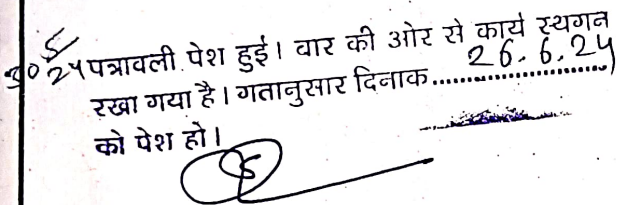 30/5/24 पत्रावली पेश हुई। वार की ओर से कार्य स्थगन
रखा गया है। गतानुसार दिनाक..........26.6.24
को पेश हो।